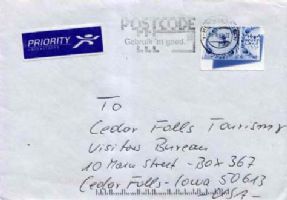 POSTCODE
Gebruik 'm goed.
PRIORITY
To
Cedar Falls Tourism
Visitors Bureau
10 Main Street - Box 367
Cedar Falls - Iowa 50613
USA -